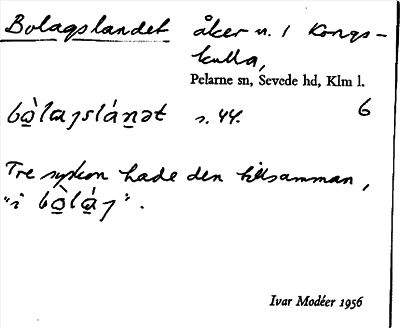 Bolagslandet åker n. 1 Kongs-
kulla,
Pelarne sn, Sevede hd, Klm l.
bò̱laɟslá̱ṉət s. 44. 6
Tre syskon hade den tillsamman,
"i bò̱lá̱ɟ".
Ivar Modéer 1956